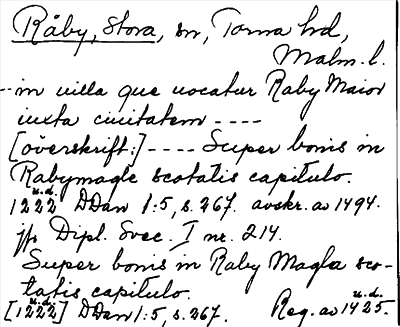 Råby, Stora, sn, Torna hd,
Malm. l.
-- in uilla que uocatur Raby Maior
iuxta ciuitatem ----
[överskrift:] ---- Super bonis in
Rabymagle scotatis capitulo.
u.d.
1222 DDan 1:5, s. 267. avskr. av 1494.
jfr Dipl. Svec. I nr. 214.
Super bonis in Raby Magla sco-
tatis capitulo.
u.d. u.d.
[1222] DDan 1:5, s. 267. Reg. av 1425.